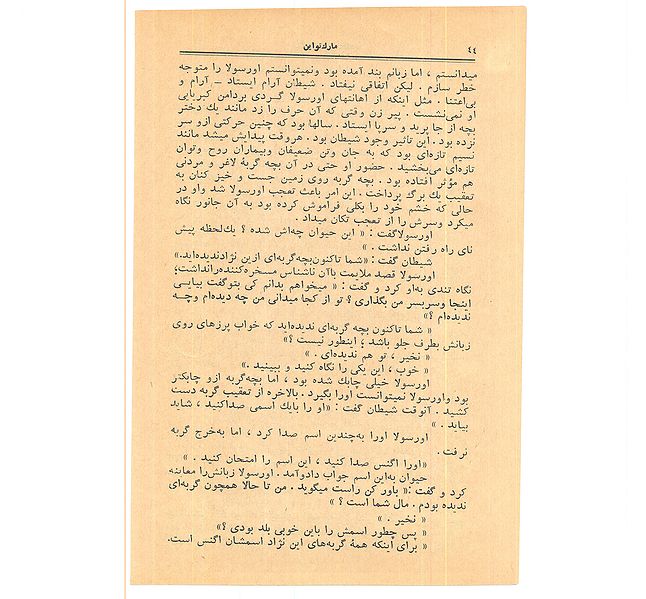 ٤٤
مارك‌تواین
میدانستم ، اما زبانم بند آمده بود ونمیتوانستم اورسولا را متوجه
خطر سازم . لیکن اتفاقی نیفتاد . شیطان آرام ایستاد ــ آرام و
بی‌اعتنا . مثل اینکه از اهانتهای اورسولا گـردی بردامن کبریایی
او نمی‌نشست . پیر زن وقتی که آن حرف را زد مانند یك دختر
بچه از جا پرید و سرپا ایستاد . سالها بود که چنین حرکتی ازو سر
نزده بود . این تاثیر وجود شیطان بود . هروقت پیدایش میشد مانند
نسیم تازه‌ای بود که به جان وتن ضعیفان وبیماران روح وتوان
تازه‌ای می‌بخشید . حضور او حتی در آن بچه گربهٔ لاغر و مردنی
هم مؤثر افتاده بود . بچه گربه روی زمین جست و خیز کنان به
تعقیب یك برگ پرداخت . این امر باعث تعجب اورسولا شد واو در
حالی که خشم خود را بکلی فراموش کرده بود به آن جانور نگاه
میکرد وسرش را از تعجب تکان میداد .
اورسولاگفت : « این حیوان چه‌اش شده ؟ یك‌لحظه پیش
نای راه رفتن نداشت . »
شیطان گفت : «شما تاکنون‌بچه‌گربه‌ای ازین نژادندیده‌اید.»
اورسولا قصد ملایمت باآن ناشناس مسخره‌کننده‌رانداشت؛
نگاه تندی به‌او کرد و گفت : « میخواهم بدانم کی بتوگفت بیایـی
اینجا وسربسر من بگذاری ؟ تو از کجا میدانی من چه دیده‌ام وچـه
ندیده‌ام ؟»
« شما تاکنون بچه گربه‌ای ندیده‌اید که خواب پرزهای روی
زبانش بطرف جلو باشد ؛ اینطور نیست ؟»
« نخیر ، تو هم ندیده‌ای . »
« خوب ، این یکی را نگاه کنید و ببینید .»
اورسولا خیلی چابك شده بود ، اما بچه‌گربه ازو چابکتر
بود واورسولا نمیتوانست اورا بگیرد . بالاخره از تعقیب گربه دست
کشید . آنوقت شیطان گفت : «او را بایك اسمی صداکنید ، شاید
بیاید . »
اورسولا اورا به‌چندین اسم صدا کرد ، اما به‌خرج گربه
نرفت .
«اورا اگنس صدا کنید ، این اسم را امتحان کنید . »
حیوان به‌این اسم جواب دادوآمد . اورسولا زبانش‌را معاینه
کرد و گفت :« باور کن راست میگوید . من تا حالا همچون گربه‌ای
ندیده بودم . مال شما است ؟ »
« نخیر . »
« پس چطور اسمش را باین خوبی بلد بودی ؟»
« برای اینکه همهٔ گربه‌های این نژاد اسمشان اگنس است.